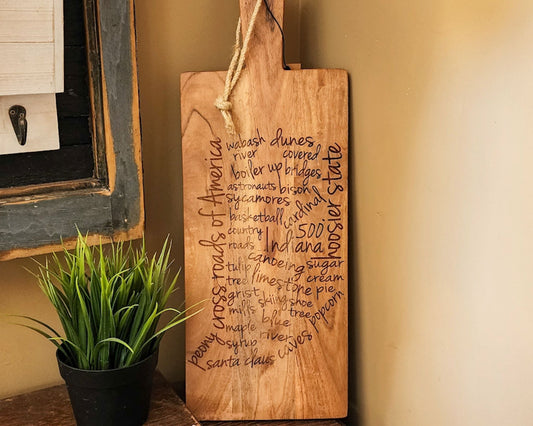 cross roads of America
wabash river
dunes
covered bridges
boiler up
astronauts
bison
sycamores
cardinal
hoosier state
basketball
country roads
500
Indiana
canoeing
sugar cream pie
tulip tree
limestone
grist mills
skiing
shoe tree
popcorn
maple syrup
blue river
caves
peony
santa claus